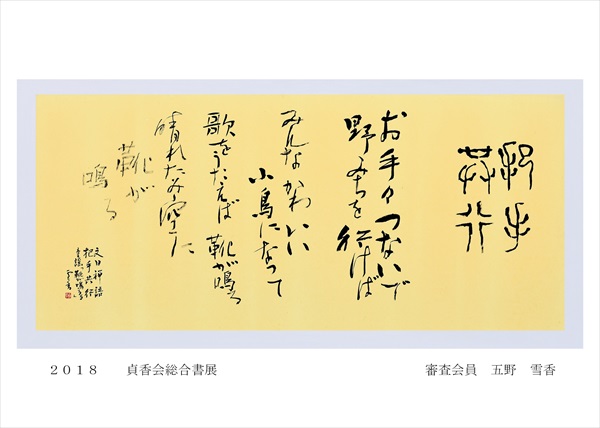 把手
共行
お手々つないで
野みちを行けば
みんなかわいい
小鳥になって
歌をうたえば 靴が鳴る
晴れたみ空に
靴が
鳴る
文曰 禅語
把手共行
雪香
２０１８　貞香会総合書展　審査会員　五野　雪香